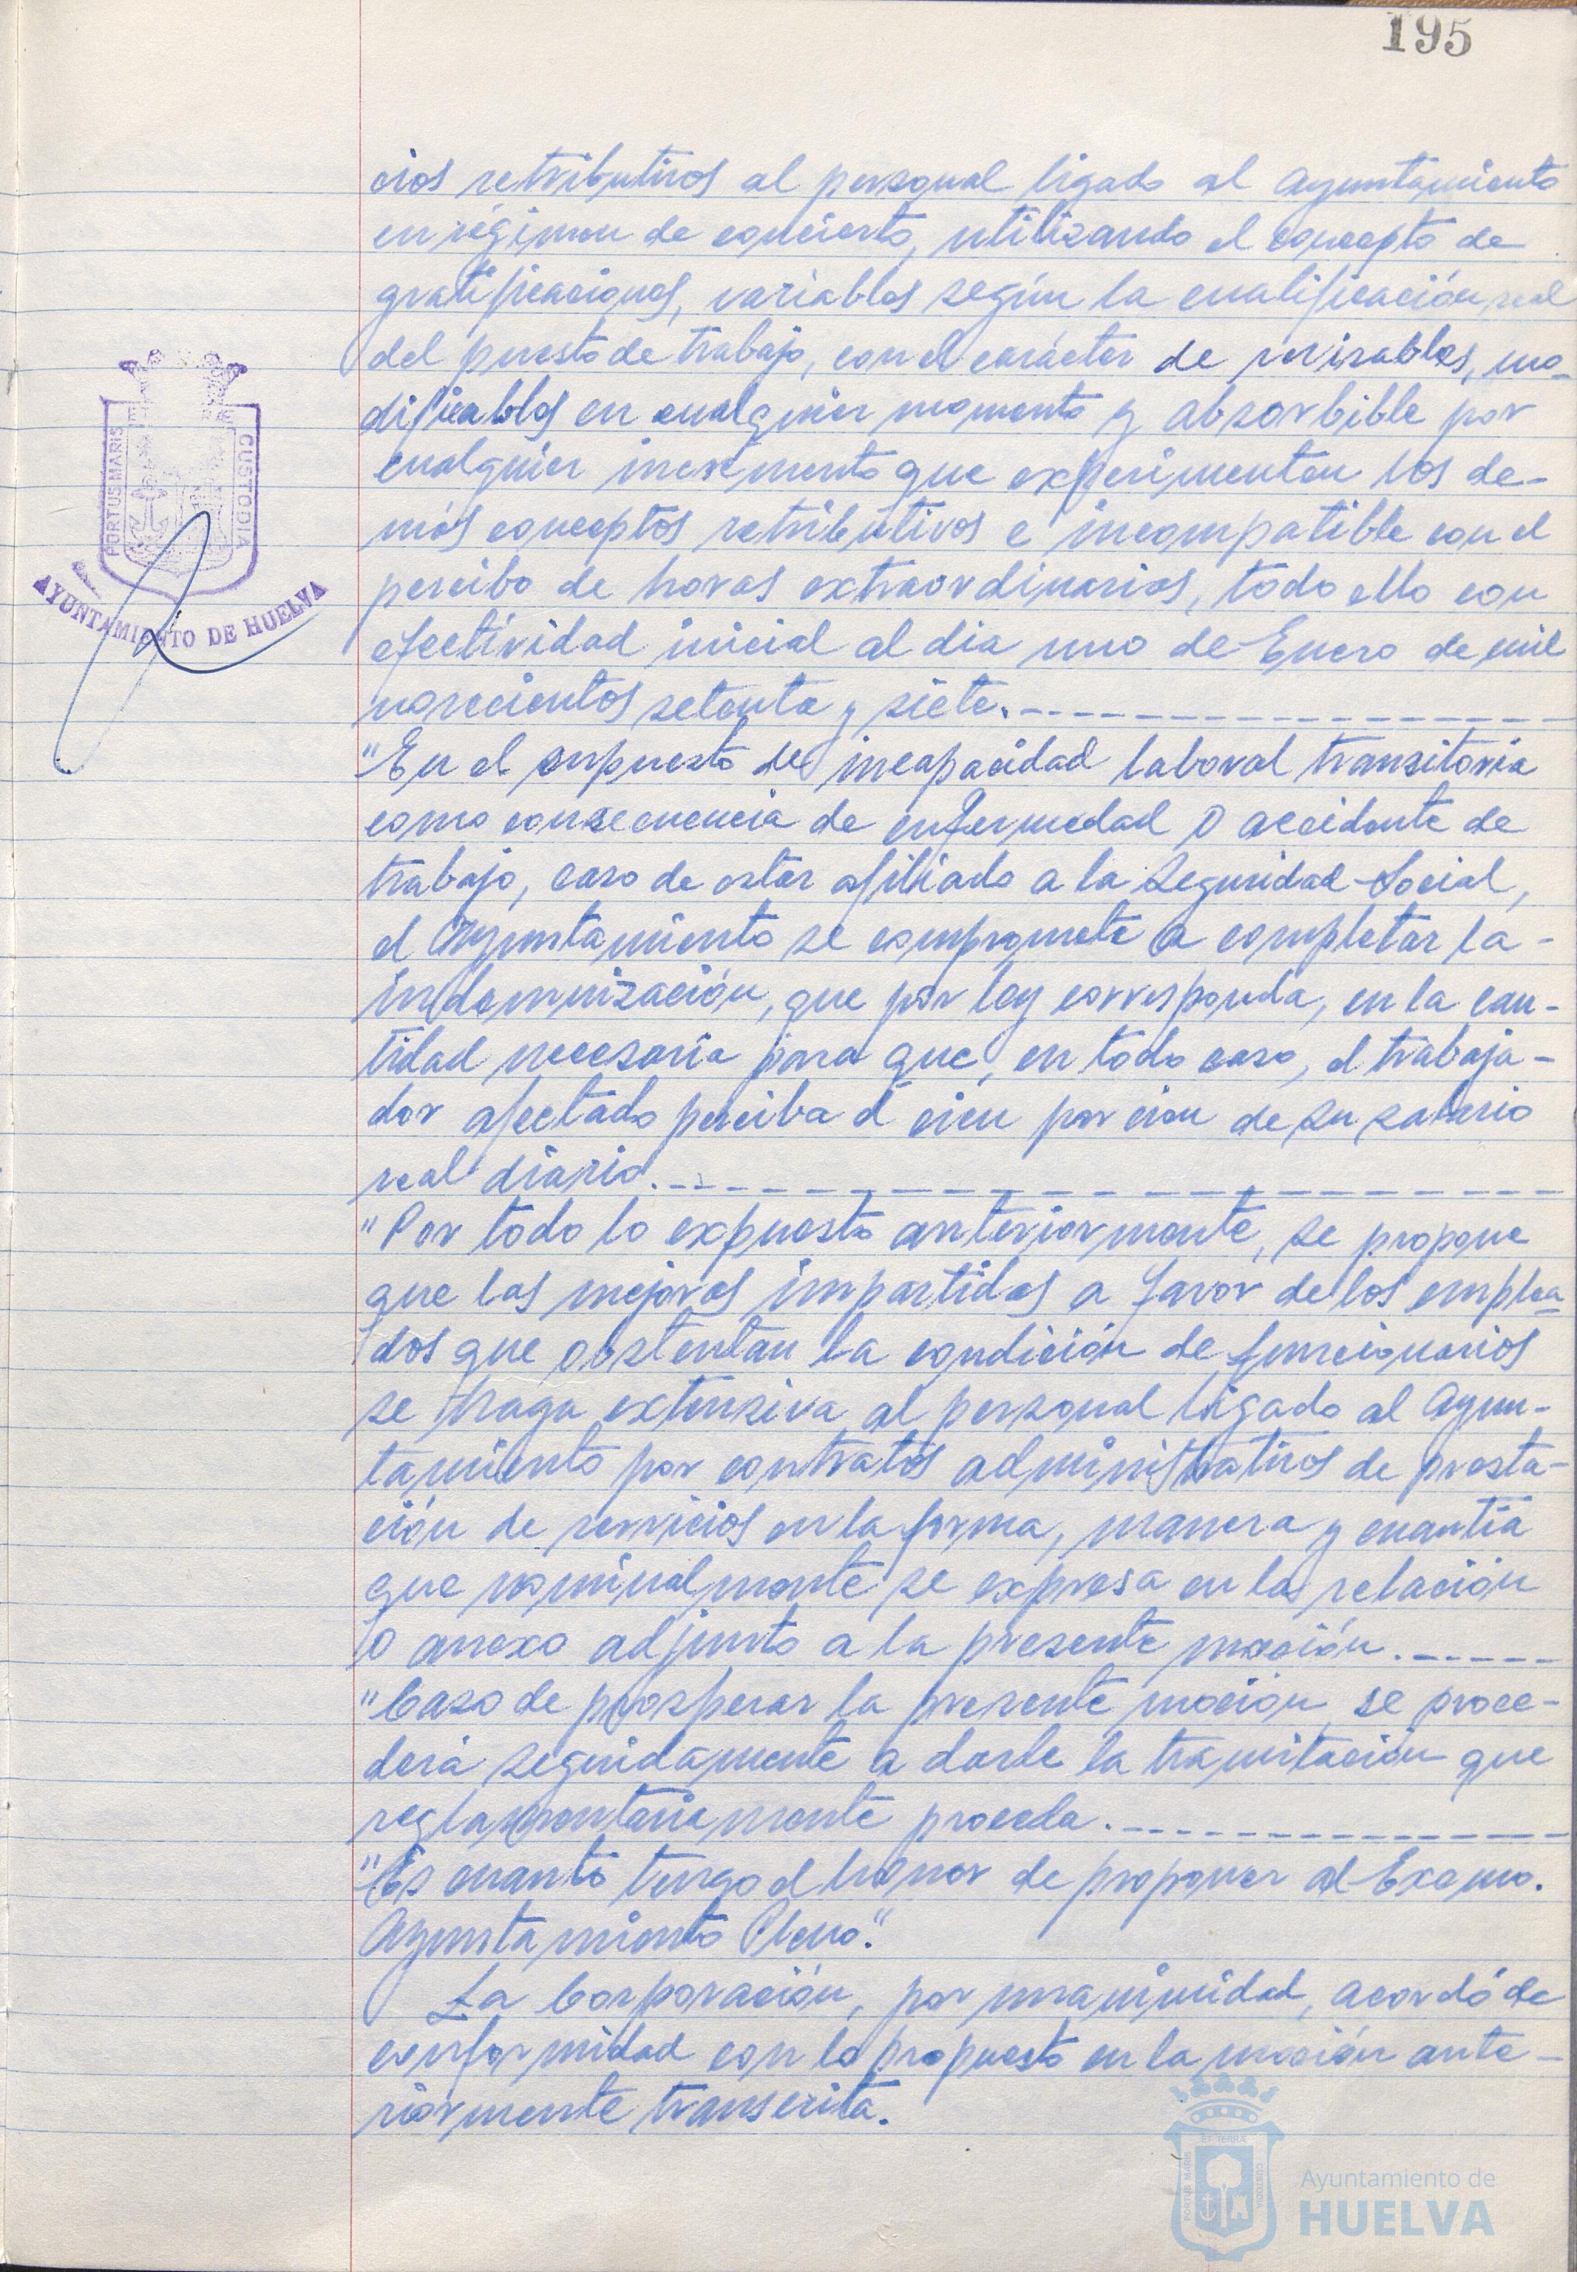 195
cios retributivos al personal ligado al Ayuntamiento
en régimen de concierto, utilizando el concepto de
gratificaciones, variables según la cualificación real
del puesto de trabajo, con el carácter de revisables, mo-
dificables en cualquier momento y absorbible por
cualquier incremento que experimenten los de-
más conceptos retributivos e incompatible con el
percibo de horas extraordinarias, todo ello con
efectividad inicial al dia uno de Enero de mil
novecientos setenta y siete.
"En el supuesto de incapacidad laboral transitoria
como consecuencia de enfermedad o accidente de
trabajo, caso de estar afiliado a la Seguridad Social,
el Ayuntamiento se compromete a completar la-
indemnización, que por ley corresponda, en la can-
tidad necesaria para que, en todo caso, el trabaja-
dor afectado perciba el cien por cien de su salario
real diario.
"Por todo lo expuesto anteriormente, se propone
que las mejoras impartidas a favor de los emplea-
dos que obstentan la condición de funcionarios
se haga extensiva al personal ligado al Ayun-
tamiento por contratos administrativos de presta-
ción de servicios en la forma, manera y cuantía
que nominalmente se expresa en la relación
o anexo adjunto a la presente moción.
"Caso de prosperar la presente moción se proce-
derá seguidamente a darle la tramitación que
reglamentariamente proceda.
"Es cuanto tengo el honor de proponer al Excmo.
Ayuntamiento Pleno".
La Corporación, por unanimidad, acordó de
conformidad con lo propuesto en la moción ante-
riormente transcrita.
PORTUS MARIS
CUSTODIA
AYUNTAMIENTO DE HUELVA
Ayuntamiento de
HUELVA